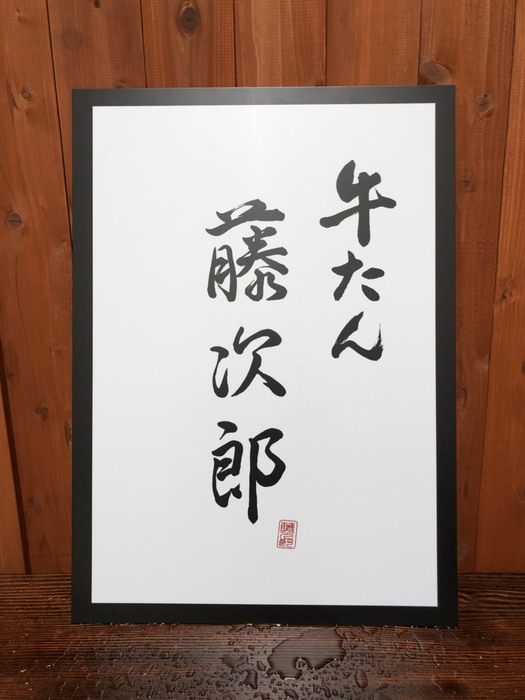 牛たん
藤次郎